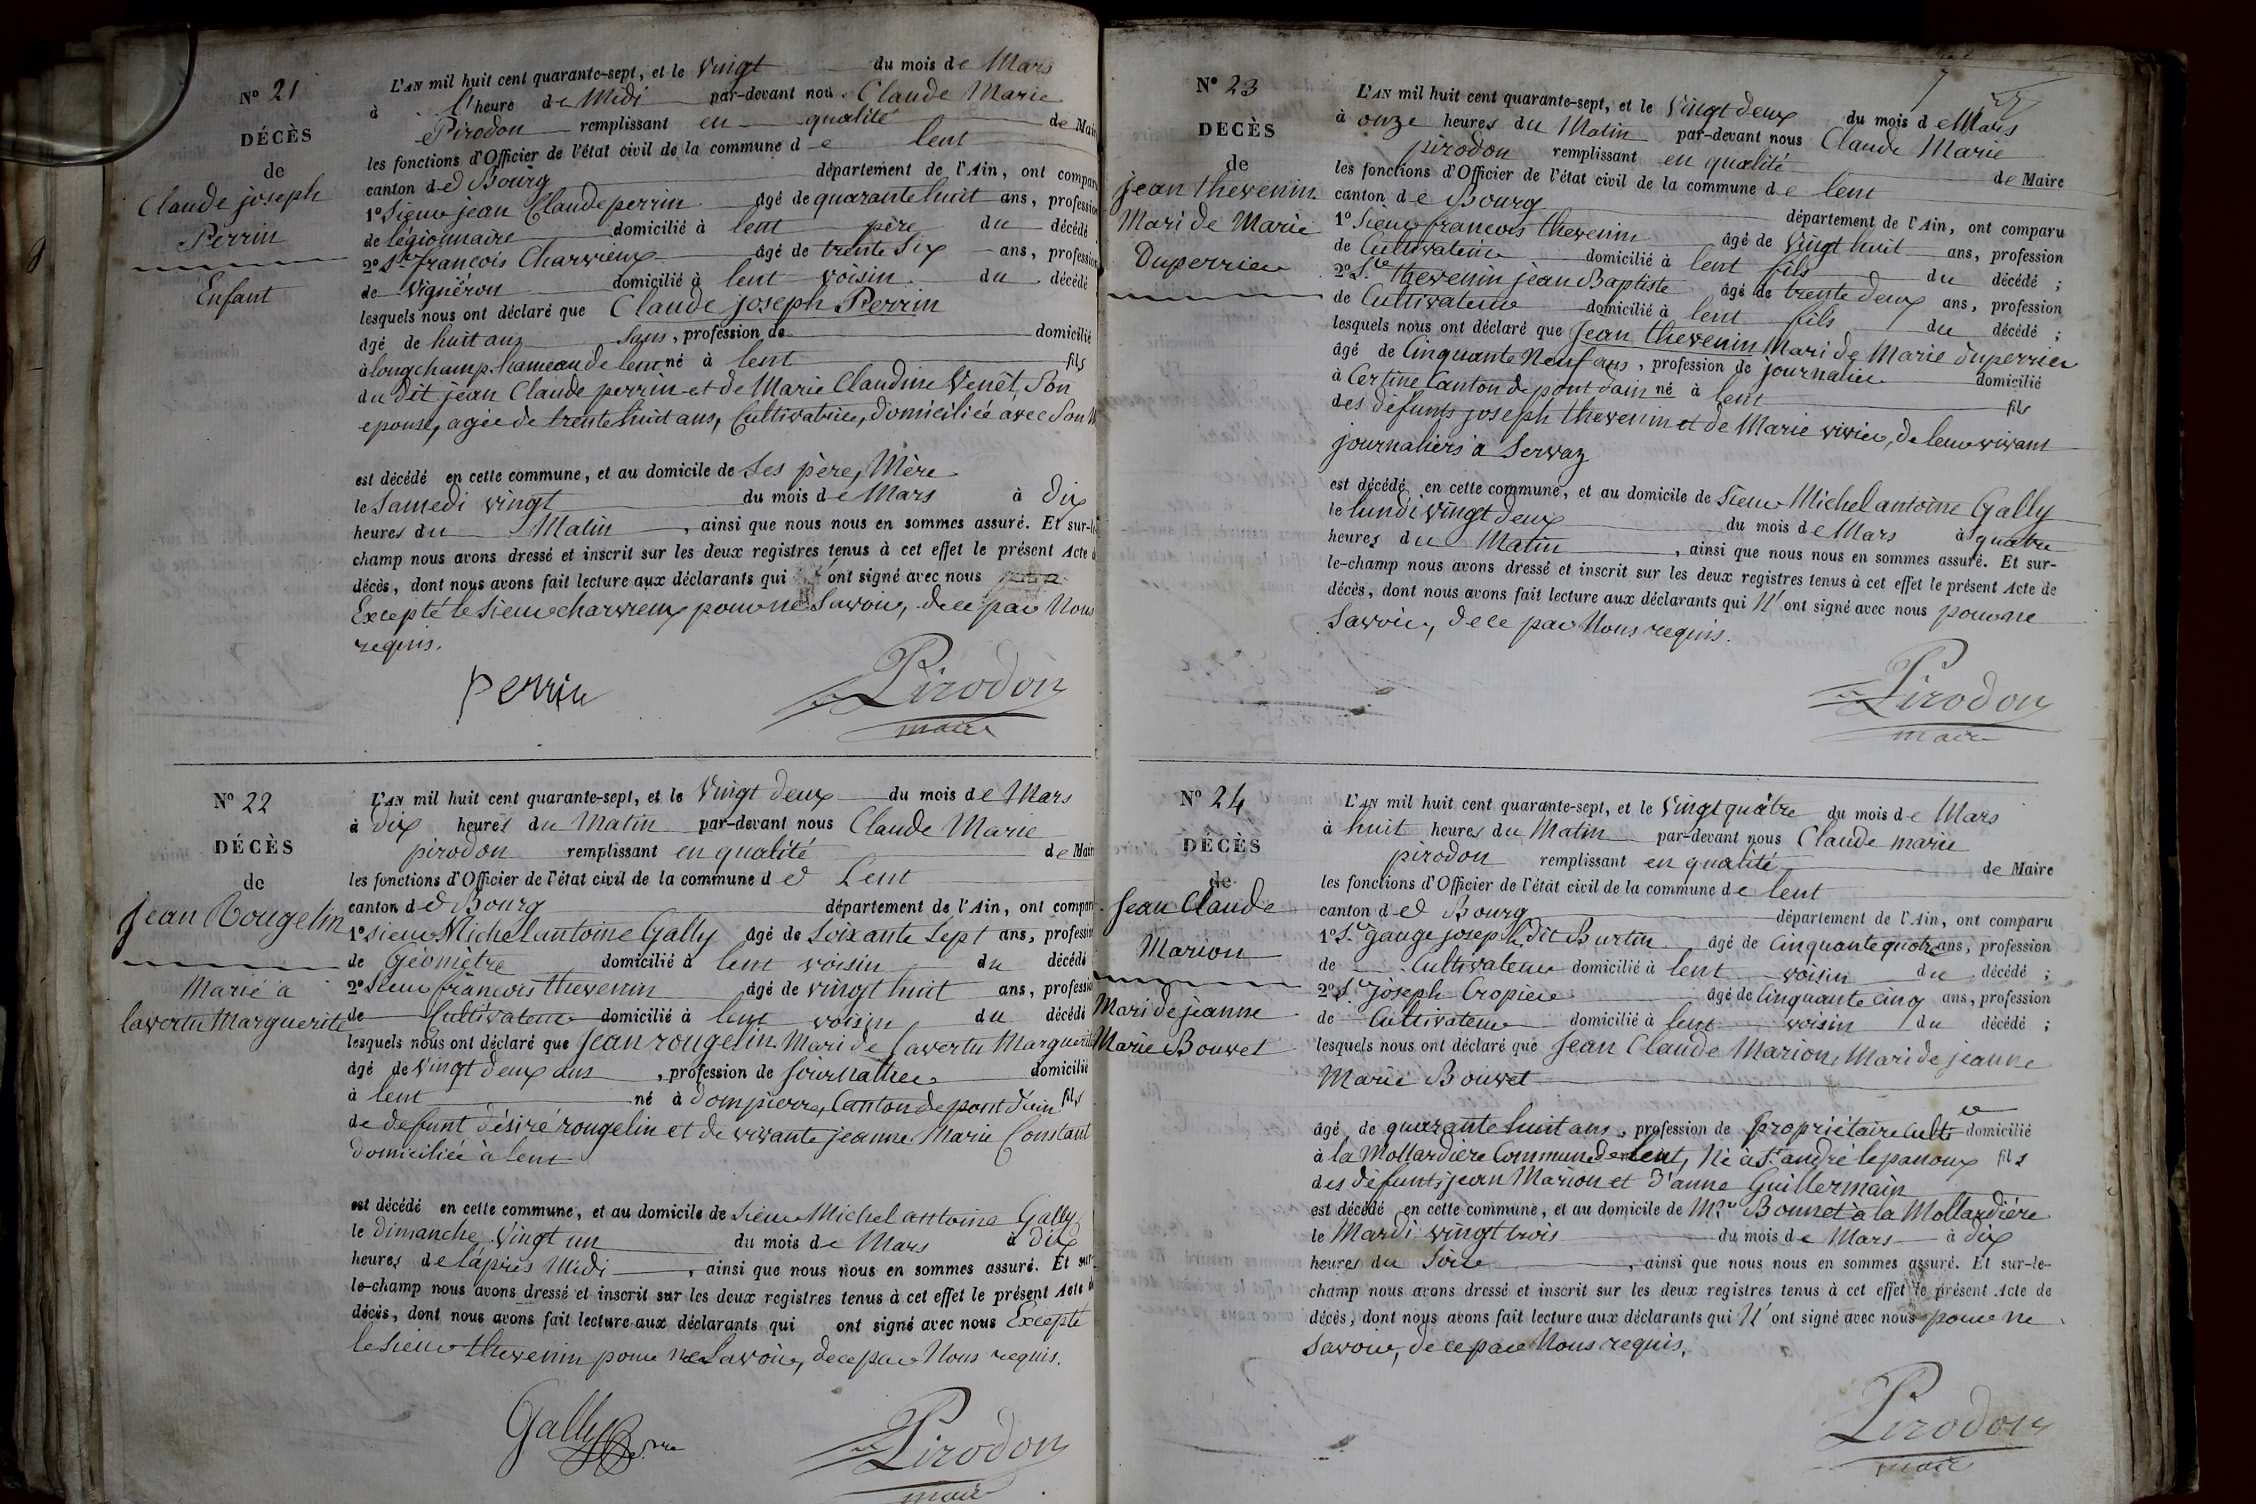 N° 21
DÉCÈS
de
Claude joseph
Perrin
Enfant
L'AN mil huit cent quarante-sept, et le Vingt du mois de Mars
à l'heure de Midi par-devant nou Claude Marie
Pirodon remplissant en qualité de Mair
les fonctions d'Officier de l'état civil de la commune de lent
canton de Bourg département de l'Ain, ont compar
1° Sieur jean Claude perrin âgé de quarante huit ans, profession
de légionnaire domicilié à lent père du décédé
2° Sr francois Charvieux âgé de trente Six ans, profession
de Vignéron domicilié à lent voisin du décédé
lesquels nous ont déclaré que Claude joseph Perrin
âgé de huit ans Sans, profession de domicilié
à longchamp hameau de lent né à lent fils
du dit jean Claude perrin et de Marie Claudine Venet, Son
epouse, agée de trente huit ans, Cultivatrice, domiciliée avec Son M
est décédé en cette commune, et au domicile de Ses père, Mère
le Samedi vingt du mois de Mars à dix
heures du Matin, ainsi que nous nous en sommes assuré. Et sur-le
champ nous avons dressé et inscrit sur les deux registres tenus à cet effet le présent Acte d
décès, dont nous avons fait lecture aux déclarants qui ont signé avec nous
Excepté le Sieur charvieux pour ne Savoir, de ce par Nous
requis.
Perrin
Pirodon
maire
N° 22
DÉCÈS
de
Jean Rougelin
Marié à
lavertu Marguerite
L'AN mil huit cent quarante-sept, et le Vingt deux du mois de Mars
à dix heures du Matin par-devant nous Claude Marie
pirodon remplissant en qualité de Mair
les fonctions d'Officier de l'état civil de la commune de Lent
canton de Bourg département de l'Ain, ont compar
1° Sieur Michel antoine Gally âgé de Soixante Sept ans, profession
de Géomètre domicilié à lent voisin du décédé
2° Sieur francois thevenin âgé de vingt huit ans, profession
de Cultivateur domicilié à lent voisin du décédé
lesquels nous ont déclaré que Jean rougelin Mari de Lavertu Marguerite
âgé de Vingt deux ans, profession de Journalier domicilié
à lent né à dompierre, Canton de pont d'ain fils
de defunt désiré rougelin et de vivante jeanne Marie Constant
domiciliée à lent
est décédé en cette commune, et au domicile de Sieur Michel antoine Gally
le dimanche Vingt un du mois de Mars à dix
heures de l'après Midi, ainsi que nous nous en sommes assuré. Et sur
le-champ nous avons dressé et inscrit sur les deux registres tenus à cet effet le présent Acte d
décès, dont nous avons fait lecture aux déclarants qui ont signé avec nous Excepté
le Sieur thevenin pour ne Savoir, de ce par Nous requis.
Gally
Pirodon
maire
N° 23
DECÈS
de
Jean thevenin
Mari de Marie
Duperrier
L'AN mil huit cent quarante-sept, et le Vingt deux du mois de Mars
à onze heures du Matin par-devant nous Claude Marie
pirodon remplissant en qualité de Maire
les fonctions d'Officier de l'état civil de la commune de lent
canton de Bourg département de l'Ain, ont comparu
1° Sieur francois thevenin âgé de Vingt huit ans, profession
de Cultivateur domicilié à lent fils du décédé ;
2° Sr thevenin jean Baptiste âgé de trente deux ans, profession
de Cultivateur domicilié à lent fils du décédé ;
lesquels nous ont déclaré que Jean thevenin Mari de Marie duperrier
âgé de Cinquante Neuf ans, profession de journalier domicilié
à Certine Canton de pont dain né à lent fils
des défunts joseph thevenin et de Marie vivier, de leur vivant
journaliers à Servaz
est décédé en cette commune, et au domicile de Sieur Michel antoine Gally
le lundi vingt deux du mois de Mars à quatre
heures du Matin, ainsi que nous nous en sommes assuré. Et sur-
le-champ nous avons dressé et inscrit sur les deux registres tenus à cet effet le présent Acte de
décès, dont nous avons fait lecture aux déclarants qui N'ont signé avec nous pour ne
Savoir, de ce par Nous requis.
Pirodon
maire
N° 24
DÉCÈS
de
Jean Claude
Marion
Mari de jeanne
Marie Bouvet
L'AN mil huit cent quarante-sept, et le Vingt quatre du mois de Mars
à huit heures du Matin par-devant nous Claude marie
pirodon remplissant en qualité de Maire
les fonctions d'Officier de l'état civil de la commune de lent
canton de Bourg département de l'Ain, ont comparu
1° Sr gauge joseph, dit Burtin âgé de Cinquante quatre ans, profession
de Cultivateur domicilié à lent voisin du décédé ;
2° Sr joseph Cropier âgé de Cinquante Cinq ans, profession
de Cultivateur domicilié à lent voisin du décédé ;
lesquels nous ont déclaré que Jean Claude Marion, Mari de jeanne
Marie Bouvet
âgé de quarante huit ans, profession de Propriétaire Cultr domicilié
à la Mollardière Commune de lent, Né à St andré le panoux fils
des défunts jean Marion et d'anne Guillermain
est décédé en cette commune, et au domicile de Mr Bonnet à la Mollardière
le Mardi vingt trois du mois de Mars à dix
heures du Soir, ainsi que nous nous en sommes assuré. Et sur-le-
champ nous avons dressé et inscrit sur les deux registres tenus à cet effet le présent Acte de
décès, dont nous avons fait lecture aux déclarants qui N'ont signé avec nous pour ne
Savoir, de ce par Nous requis.
Pirodon
maire